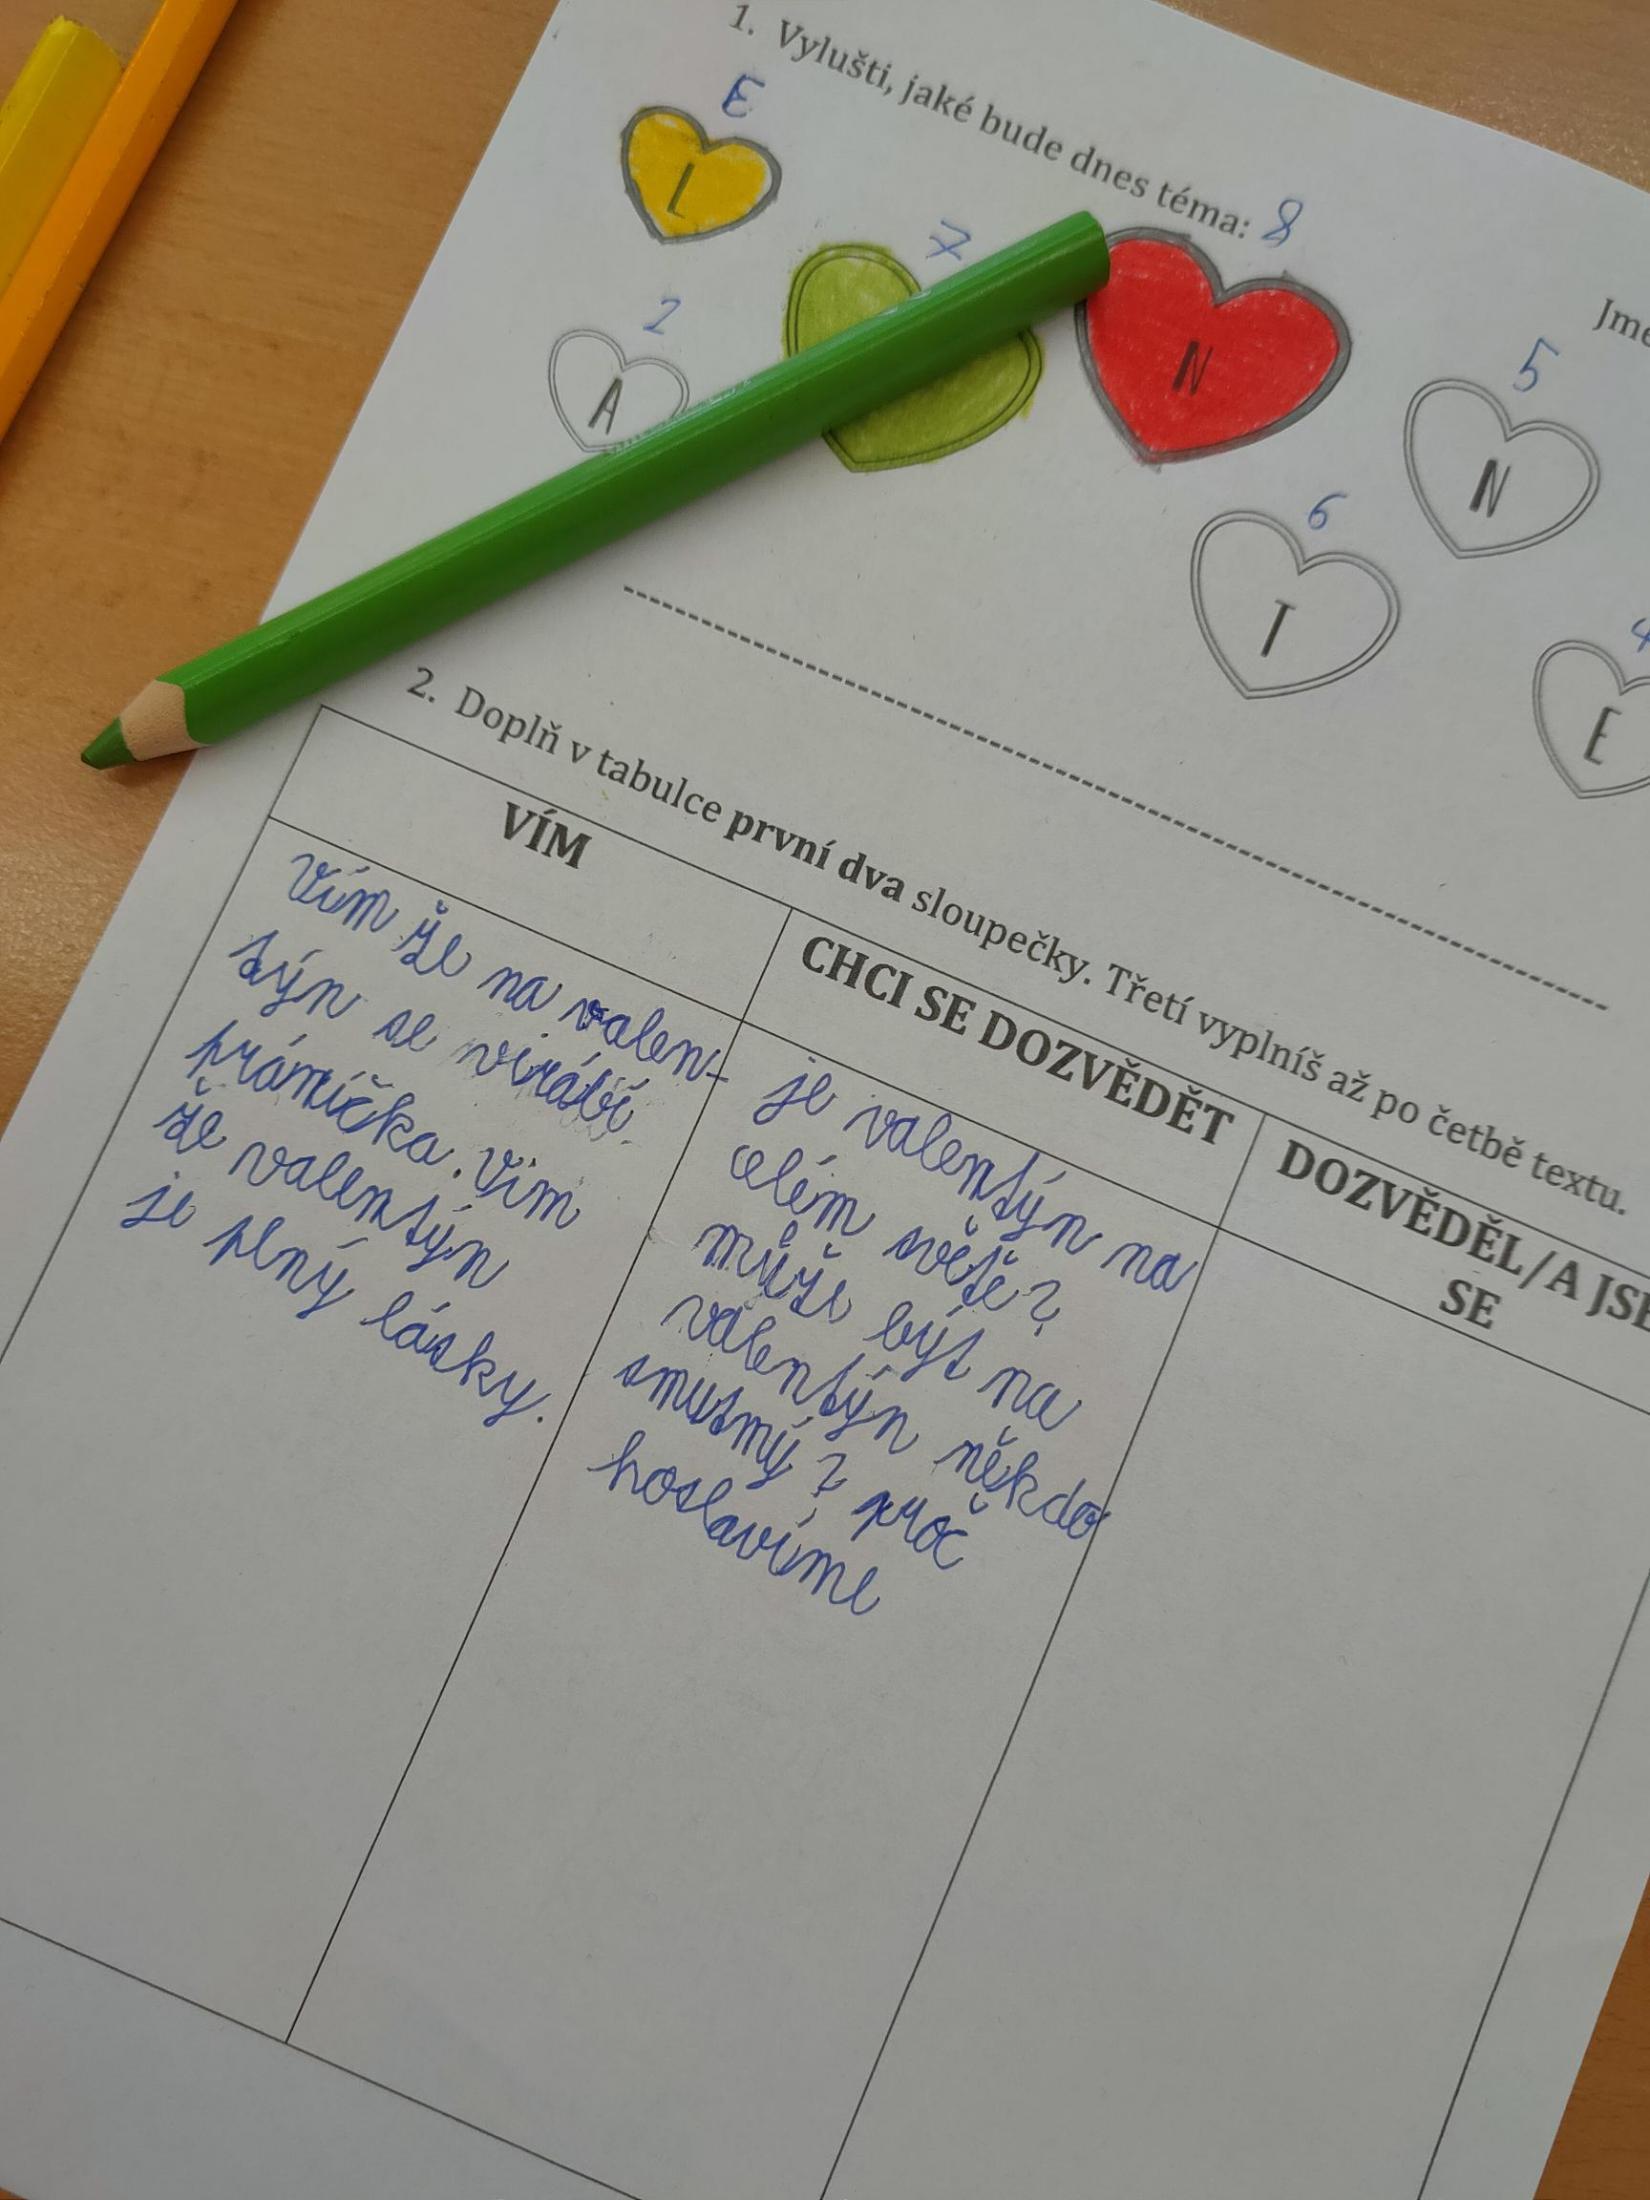 1. Vylušti, jaké bude dnes téma:
Jme
8
L
7
N
2
A
5
N
6
T
4
E
2. Doplň v tabulce první dva sloupečky. Třetí vyplníš až po četbě textu.
VÍM
Vím že na valen-
týn se virábí
př​áníčka. Vím
že valentýn
je plný lásky.
CHCI SE DOZVĚDĚT
je valentýn na
celém světě?
může být na
valentýn někdo
smutný? proč
hoslavíme
DOZVĚDĚL/A JSE
SE